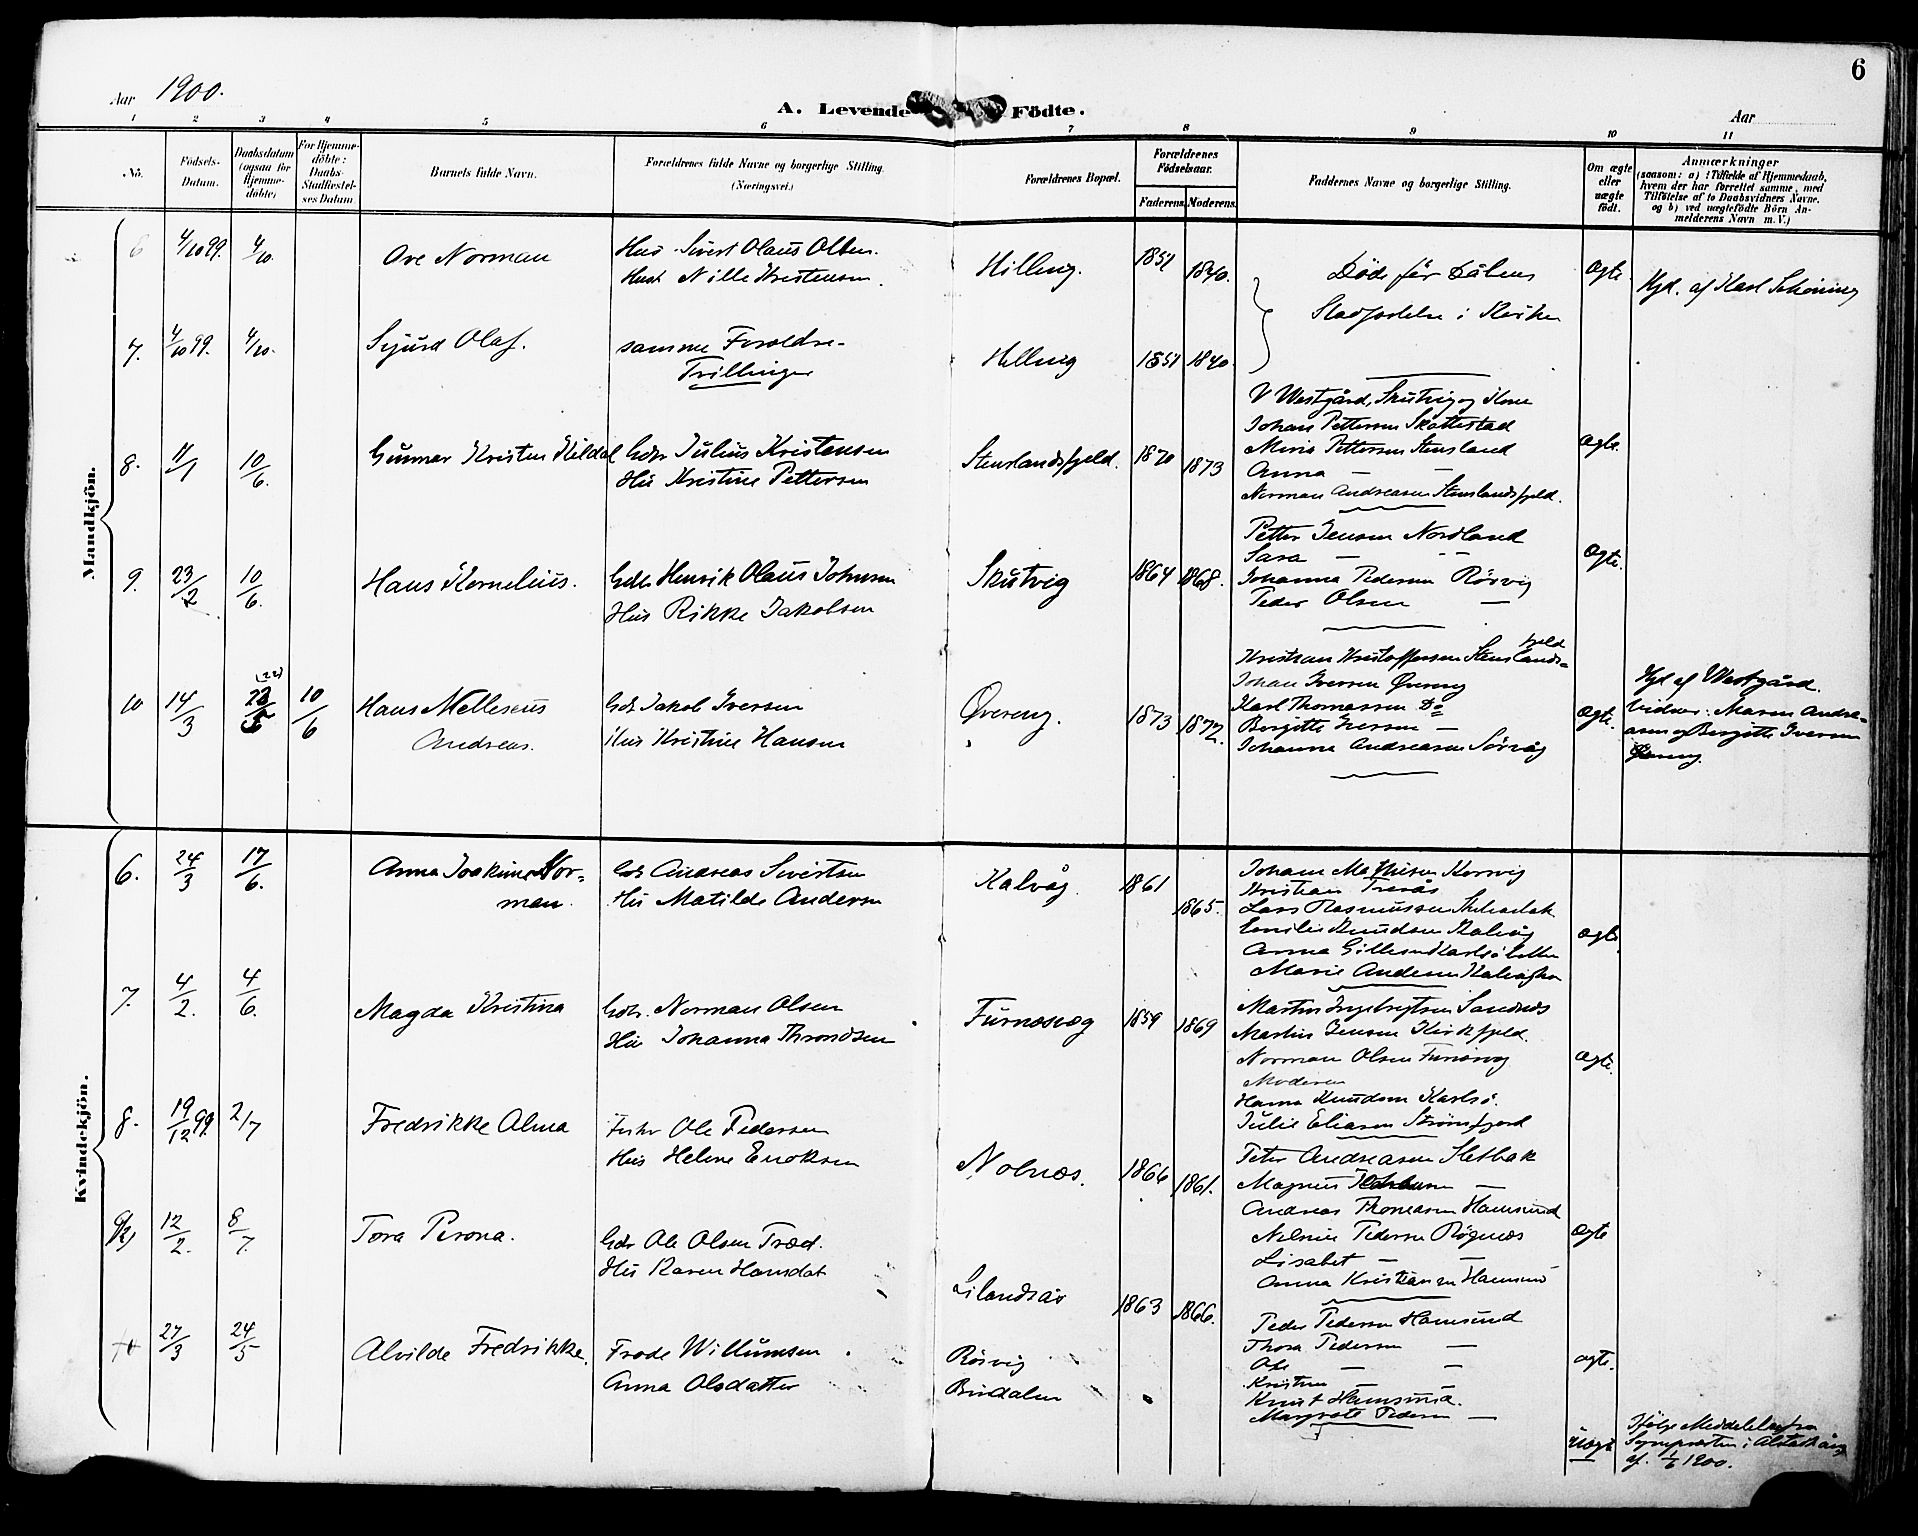 6
Aar 1900.
A. Levende Födte.
Aar
1 2 3 4 5 6 7 8 9 10 11
No.
Födsels-
Datum.
Daabsdatum
(ogsaa for
Hjemme-
döbte)
For Hjemme-
döbte:
Daabs-
Stadfæstel-
ses Datum
Barnets fulde Navn.
Forældrenes fulde Navne og borgerlige Stilling.
(Næringsvei.)
Forældrenes Bopæl.
Forældrenes
Födselsaar.
Faderens. Moderens.
Faddernes Navne og borgerlige Stilling.
Om ægte
eller
uægte
födt.
Anmærkninger
(saasom: a) i Tilfælde af Hjemmedaab,
hvem der har forrettet samme, med
Tilföielse af to Daabsvidners Navne,
og b) ved uægtefödte Börn An-
melderens Navn m. V.)
Mandkjön.
6 4/10 99. 4/10. Ove Norman
Sivert Olaus Olsen.
Nille Kristensen.
Hilling. 1851 1840.
Döde før Dåbens
Stadfæstelse i Kirken
Ægte.
Hjd. af Karl Schöning
7. 4/10 99. 4/10. Sigurd Olaf.
samme Foreldre-
Trillinger
Hilling 1851 1840.
8. 11/1 10/6. Gunnar Kristen Kildal
Gdr Julius Kristensen
Hu Kristine Pettersen
Stenslandsfjeld. 1870 1873
V Westgård, Skutvig og
Johan Pettersen Skottestad
Mina Pettersen Stensland
Anna — —
Norman Andreasen Stenslandsfjeld.
Ægte.
9. 23/2 10/6. Hans Kornelius.
Henrik Olaus Johnsen
Hus Rikke Jakobsen
Skutvig 1864 1868.
Petter Jensen Nordland
Sara — —
Johanna Pedersen Rörvig
Peder Olsen —
Ægte.
10 14/3 (22) 10/6 Hans Mellesius
Andreas.
Gdr Jakob Iversen
Hus Kristine Hansen
Övereng. 1873 1872.
Kristian Kristoffersen Stenslands=
fjeld
Johan Iversen Övereng
Karl Thomassen Do
Bergitte Iversen —
Johanna Andreasen Sörvåg
Ægte.
Hjd af Westgård.
Vidner: Maren Andre-
asen og Bergitte Iversen
Övereng.
Kvindekjön.
6. 24/3 17/6. Anna Joakime Nor=
man.
Gdr Andreas Sivertsen
Hu Matilde Andersen
Kalvåg. 1861 1865.
Johan Mathisen Korsvig
Kristian
Lars Rasmussen
Emilie Knudsen Kalvåg
Anna
Marie Andersen
Ægte
7. 4/2. 4/6. Magda Kristina
Gdr. Norman Olsen
Hu Johanna Throndsen
Furnesvæg 1859 1869
Martin Ingebrigtsen Sandnes
Martin Jensen Kirkfjeld.
Norman Olsen
Moderen
Hanna Knudsen Karlsö.
Julie Eliasen Strömsfjord
Ægte.
8. 19/12 99. 2/7 Fredrikke Alma
Ole Pedersen
Hus Helene Enoksen
Nolnæs. 1866 1861.
Peter Andreasen Sletbak
Magnus —
Andreas Thomasen Hamsund
Pedersen Rögnæs
Lisabet — —
Anna Kristiansen Hamsund
Ægte
9 12/2. 8/7. Tora Perona.
Gdr Ole Olsen Træd.
Hu Karen Hansdat
1863 1866.
Peder Pedersen Hamsund
Thora Pedersen —
Ole — —
Kristine — —
Knut Hamsund.
Margrete Pedersen —
ægte.
10 27/3 24/5 Alvilde Fredrikke.
Frode Willumsen.
Anna Olsdatter
Rörvig
Bindalen
uægt
Ifölge Meddelelse fra
Sognepræsten i Alstahåug
af. 1/6 1900.